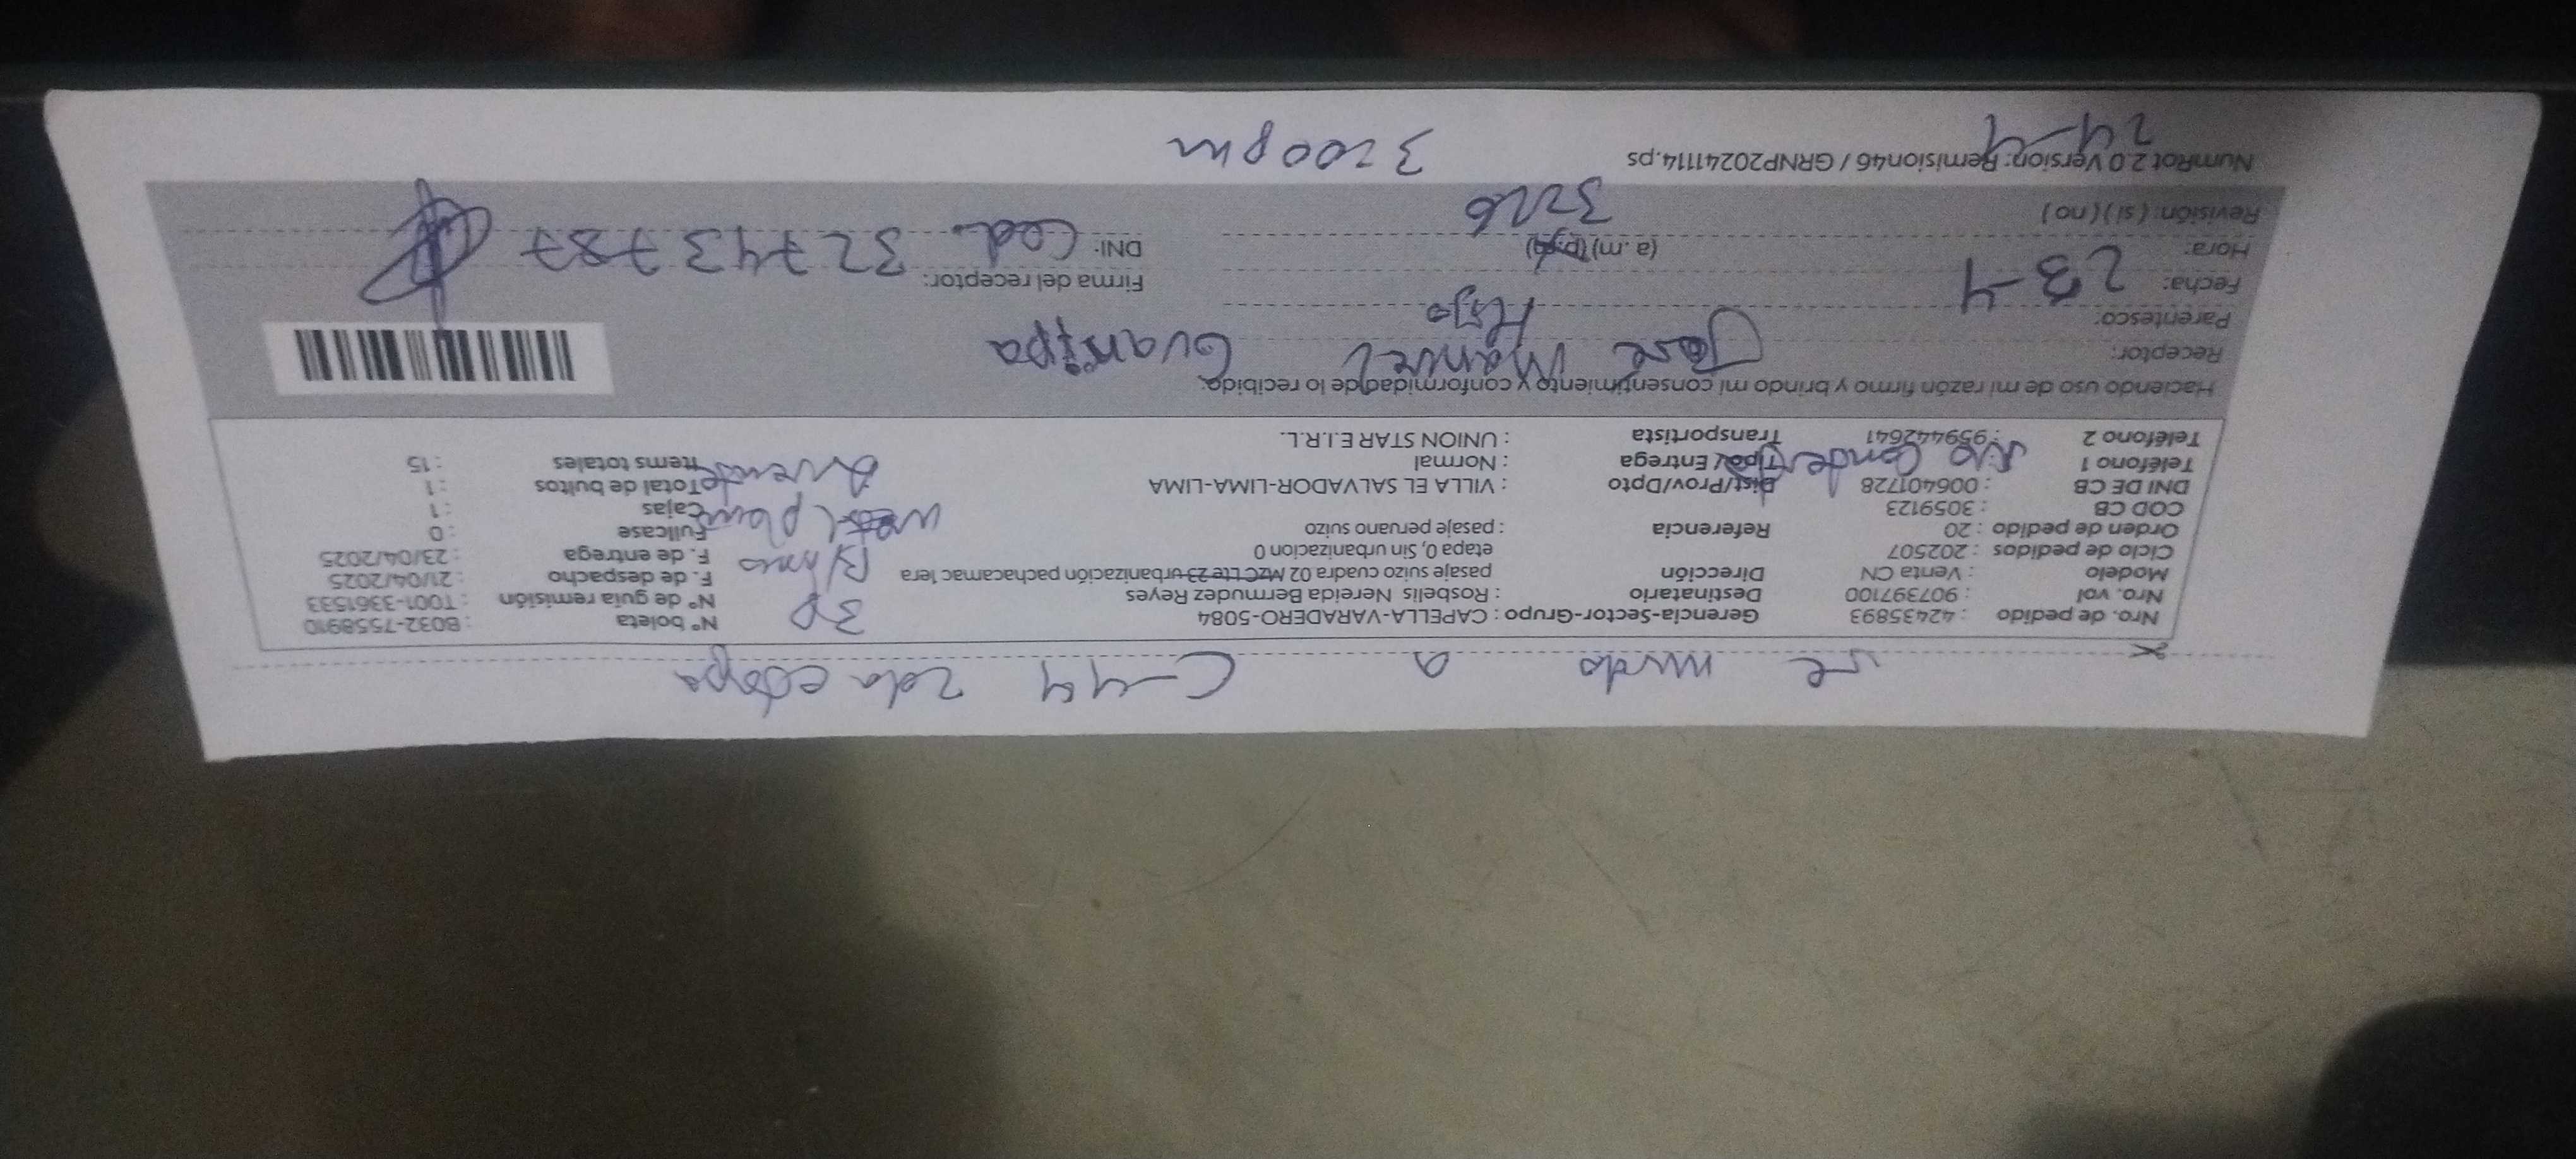 se mudo a C-44 2da etapa
Nro. de pedido : 42435893 Gerencia-Sector-Grupo : CAPELLA-VARADERO-5084 3P Nº boleta : B032-7558910
Nro. vol : 907397100 Destinatario : Rosbelis Nereida Bermudez Reyes Nº de guía remisión : T001-3361533
Modelo : Venta CN Dirección pasaje suizo cuadra 02 MzC Lte 23 urbanización pachacamac 1era F. de despacho : 21/04/2025
Ciclo de pedidos : 202507 etapa 0, Sin urbanizacion 0 F. de entrega : 23/04/2025
Orden de pedido : 20 Referencia : pasaje peruano suizo Fullcase : 0
COD CB : 3059123 Cajas : 1
DNI DE CB : 006401728 Dist/Prov/Dpto : VILLA EL SALVADOR-LIMA-LIMA Total de bultos : 1
Teléfono 1 Tipo/ Entrega : Normal Items totales : 15
Teléfono 2 : 959442641 Transportista : UNION STAR E.I.R.L.
Haciendo uso de mi razón firmo y brindo mi consentimiento y conformidad de lo recibido.
Receptor: Jose Manuel Guanipa
Parentesco: Hijo
Fecha: 23-4 Firma del receptor:
Hora: (a.m)(p.m) DNI: Ced. 32743787
Revisión: (si) (no) 3226
NumRot 2.0 Version: Remision46 / GRNP20241114.ps
24-4 3:00pm